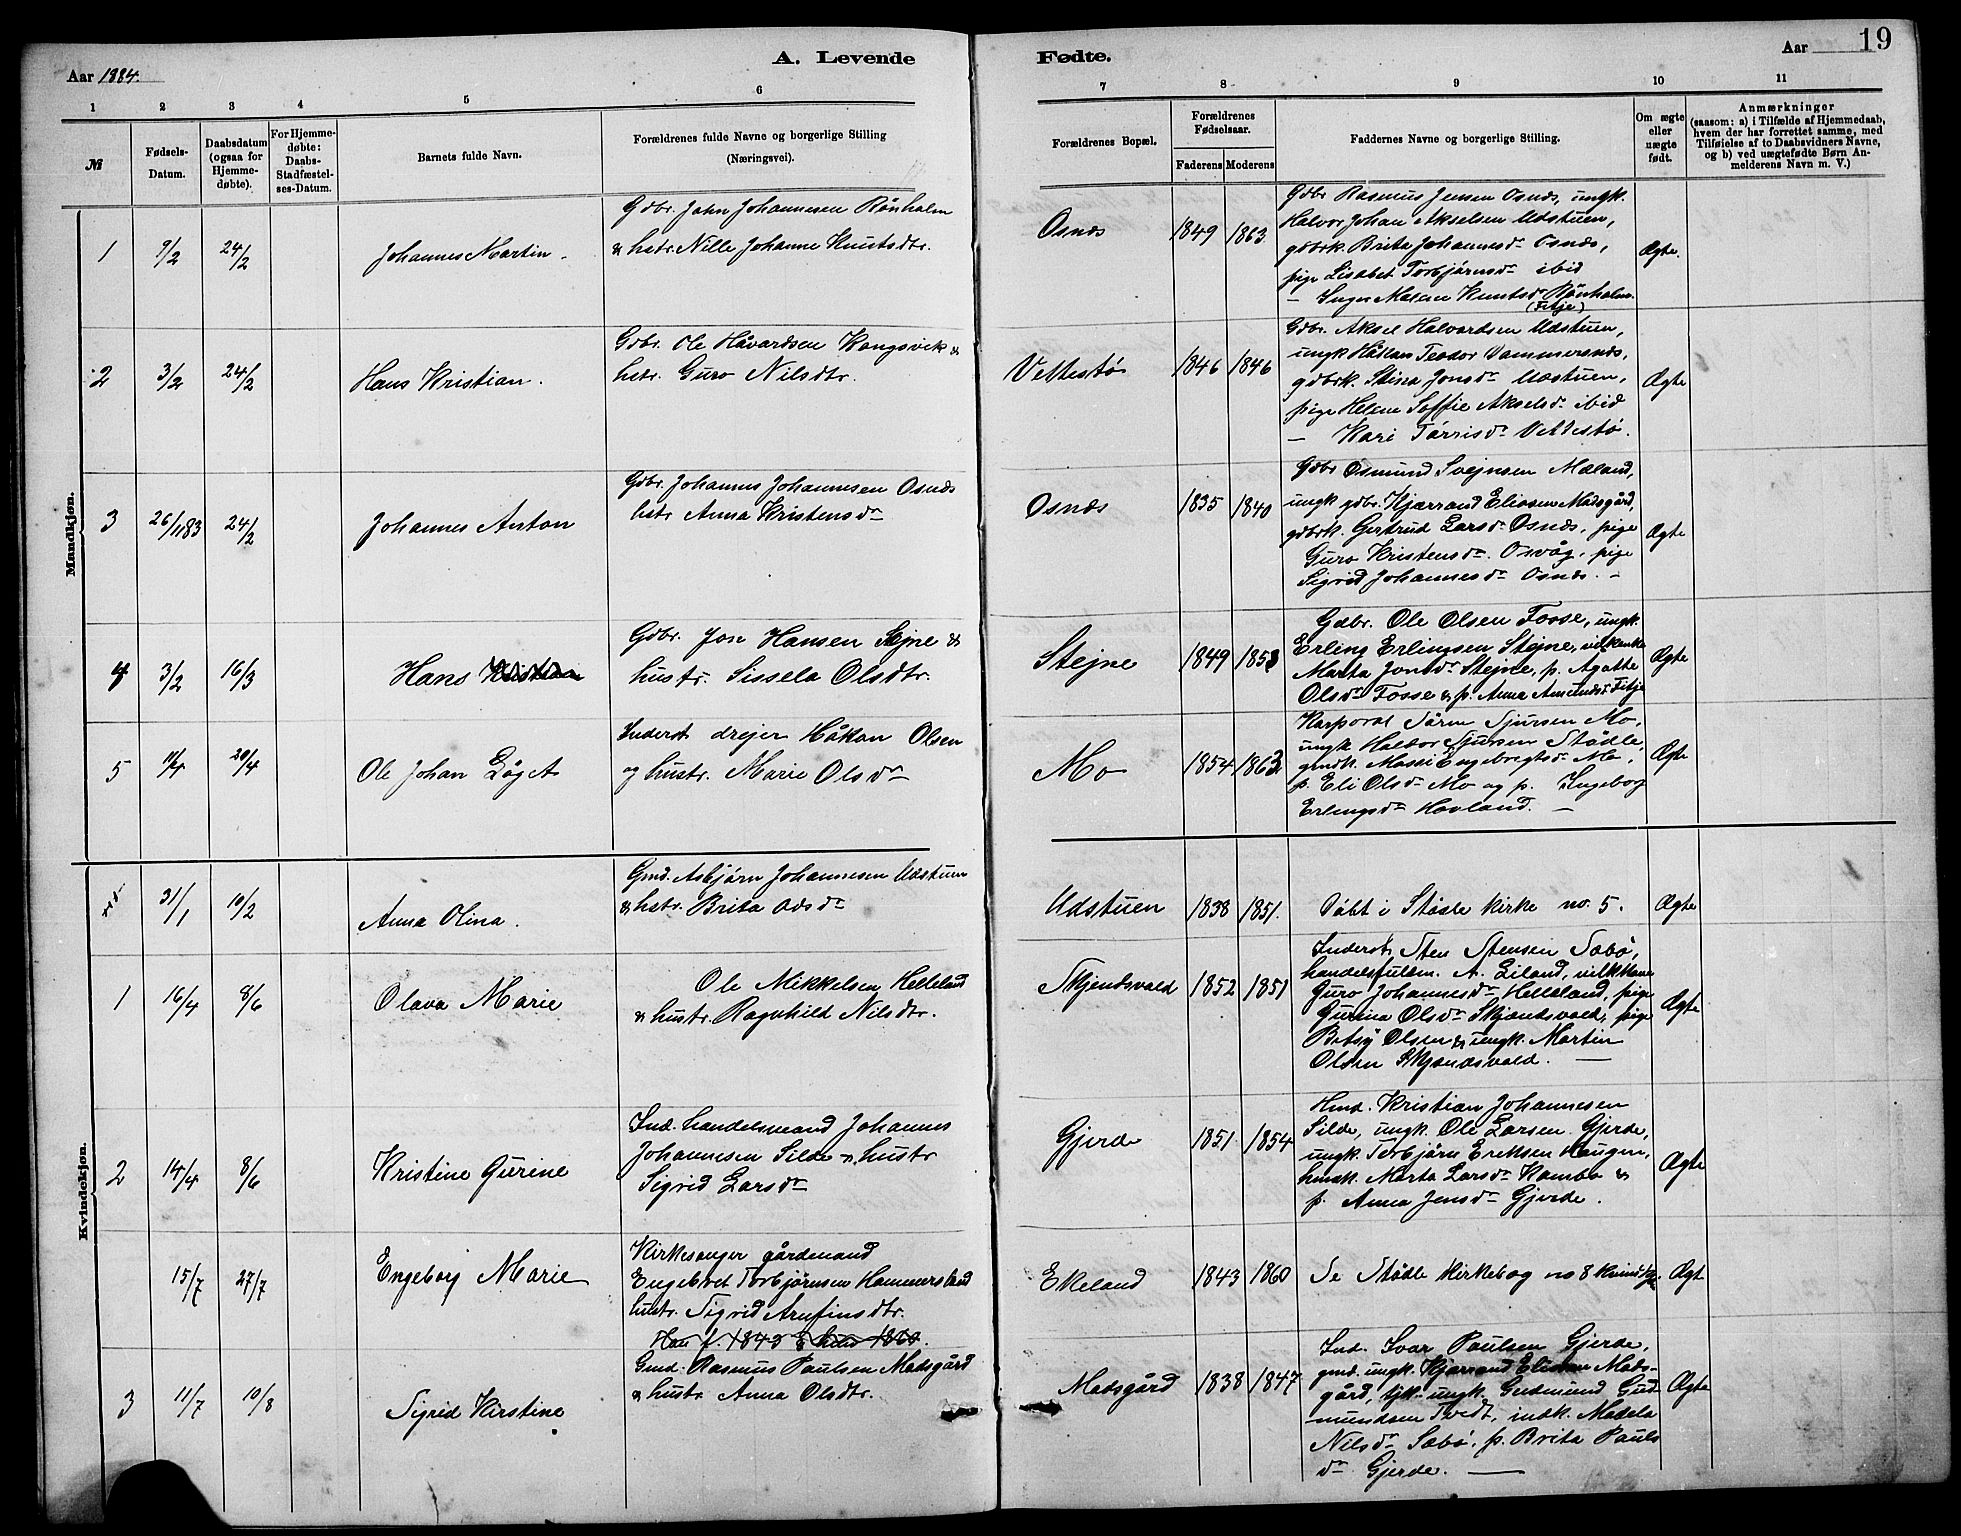 Aar 1884.
A. Levende
Fødte.
Aar
19
1 2 3 4 5 6
7 8 9 10 11
№
Fødsels-
Datum.
Daabsdatum
(ogsaa for
Hjemme-
døbte).
For Hjemme-
døbte:
Daabs-
Stadfæstel-
ses-Datum.
Barnets fulde Navn.
Forældrenes fulde Navne og borgerlige Stilling
(Næringsvei).
Forældrenes Bopæl.
Forældrenes
Fødselsaar.
Faderens Moderens
Faddernes Navne og borgerlige Stilling.
Om ægte
eller
uægte
født.
Anmærkninger
(saasom: a) i Tilfælde af Hjemmedaab,
hvem der har forrettet samme, med
Tilføielse af to Daabsvidners Navne,
og b) ved uægtefødte Børn An-
melderens Navn m. V.)
Mandkjøn.
1
9/2
24/2
Johannes Martin.
Gdbr. John Johannesen Rönholm
& hstr. Nille Johanne Knutsdtr.
Osnæs
1849 1863
Gdbr Rasmus Jensen Osnæs, ungk.
Halvor Johan Akselsen Udstuen,
gdbrk. Brita Johannesdr Osnæs,
pige Lisabet Torbjörnsdr ibid
— Malene Knutsdr Rönholm.
(Fitje)
Ægte.
2
3/2
24/2
Hans Kristian.
Gdbr. Ole Håvardsen Vangsvik &
hstr. Guro Nilsdtr.
Vettestø
1846 1846
Gdbr. Aksel Halvardsen Udstuen,
ungk Håkan Teodor Vammersnæs,
gdbrk. Stina Jonsdr Udstuen,
pige Helene Soffie Akselsdr ibid
— Kari Tørrisdr Vettestø.
Ægte
3
26/11 83
24/2
Johannes Anton
Gdbr. Johannes Johannesen Osnæs
hstr Anna Kristensdr
Osnæs
1835 1840
Gdbr Osmund Svejnsen Mæland,
ungk gdbr. Kjærrand Eliasen Madsgård,
gdbrk. Gertrud Larsdr Osnæs, pige
Guro Kristensdr. Osvåg, pige
Sigrid Johannesdr Osnæs. —
Ægte
4
3/2
16/3
Hans Kristian
Gdbr. Jon Hansen Stejne &
hustr. Sissela Olsdtr.
Stejne
1849 1853
Gdbr. Ole Olsen Fosse, ungk.
Erling Erlingsen Stejne,
Marta Jonsdr Stejne, p. Agatte
Olsdr Fosse & p. Anna Amundsdr Fitje
Ægte
5
11/4
20/4
Ole Johan Løget
Inderst drejer Håkon Olsen
og hustr. Marie Olsdr
Mo
1854 1863
Korporal Sören Sjursen Mo,
ungk Halvor Sjursen Stødle,
gmdk. Massi Engebregtsdr Mo,
p. Eli Olsdr Mo og p. Ingeborg
Erlingsdr Hovland. —
Ægte
Kvindekjøn.
31/1
10/2
Anna Olina.
Gmd. Asbjørn Johannesen Udstuen
& hstr. Brita Odsdr
Udstuen
1838 1851.
Døbt i Stødle kirke no. 5.
Ægte
1
16/4
8/6
Olava Marie
Ole Mikkelsen Helleland
& hustr. Ragnhild Nilsdtr.
Skjendsvald
1852 1851
Inderst Sten Stensen Sæbø,
handelsfuldm. A. Eiland,
Guro Johannesdr Helleland, pige
Gurina Olsdr Skjændsvald, pige
Betsy Olsen & ungk. Martin
Olsen Skjændsvald. —
Ægte
2
14/4
8/6
Kristine Gurine
Ind. handelsmand Johannes
Johannesen Silde & hustr
Sigrid Larsdr
Gjerde
1851. 1854
Hmd. Kristian Johannesen
Silde, ungk. Ole Larsen Gjerde,
ungk. Torbjörn Eriksen Haugen,
hmdk. Marta Larsdr Kambo &
p. Anna Jensdr Gjerde.
Ægte
15/7
27/7
Engeborg Marie
Kirkesanger gårdmand
Engebret Torbjørnsen Hammersland
hustr. Sigrid Arnfinsdtr.
Han f. 1843 & hun 1860.
Ekeland
1843 1860
Se Stødle kirkebog no 8
Ægt
3
11/7
10/8
Sigrid Kirstine
Gmd. Rasmus Paulsen Madsgård
& hustr Anna Olsdtr.
Madsgård
1838 1847
Ind. Ivar Paulsen Gjerde,
gmd. ungk. Kjærrand Eliasen Mads-
gård, tjk. ungk. Gudmund Gud-
mundsen Tvedt, indk. Madela
Nilsdr Sæbø, p. Brita Pauls
dr Gjerde. —
Ægte